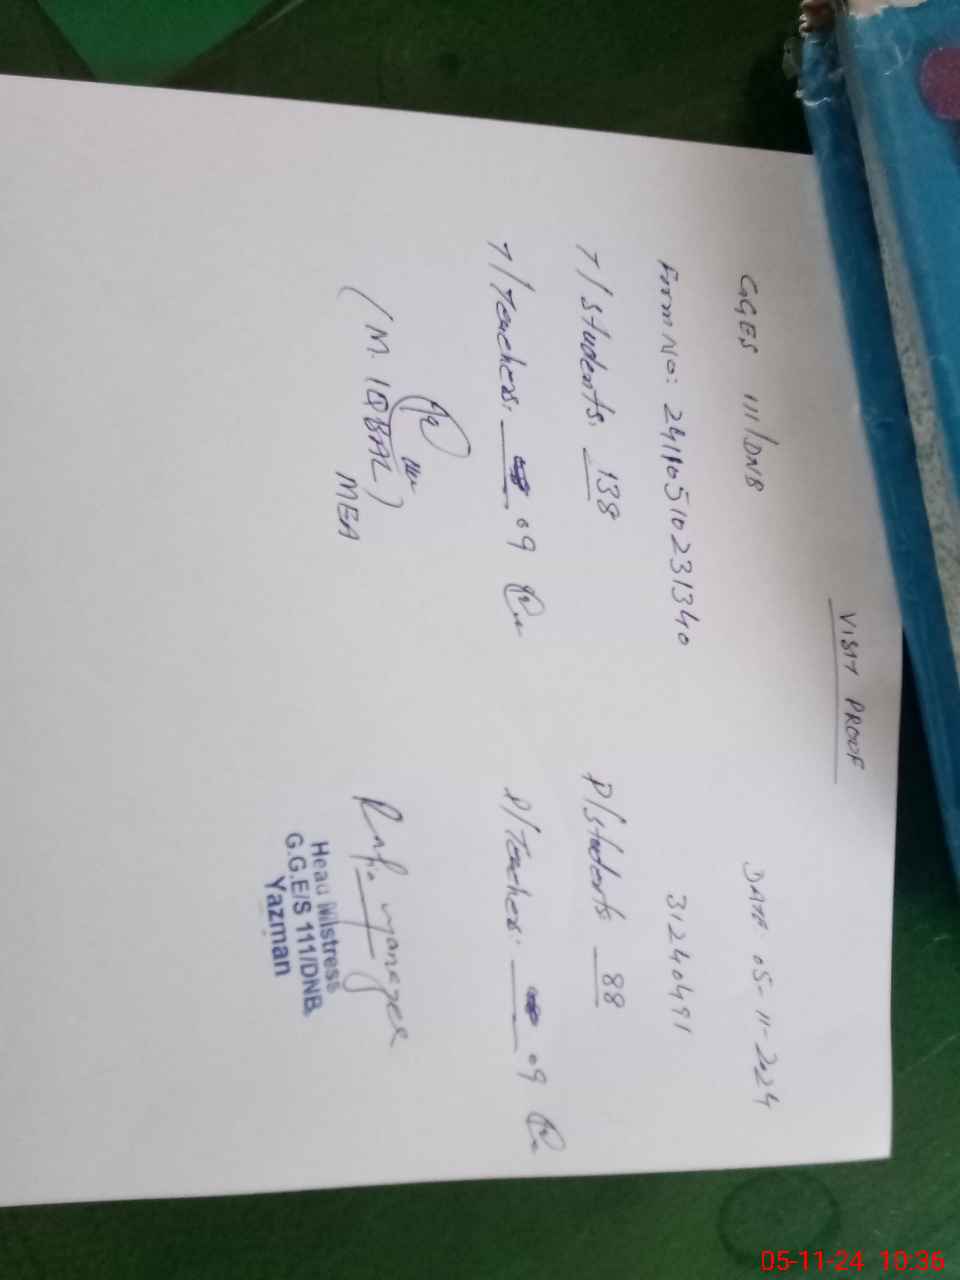 VISIT PROOF
GGES 111/DNB DATE: 05-11-2024
Form No: 2411051023 1340 31240491
T/Students. 138 P/Students 88
T/Teachers. 09 P/Teachers. 09
(M. IQBAL)
MEA
Head Mistress
G.G.E/S 111/DNB
Yazman
05-11-24 10:36